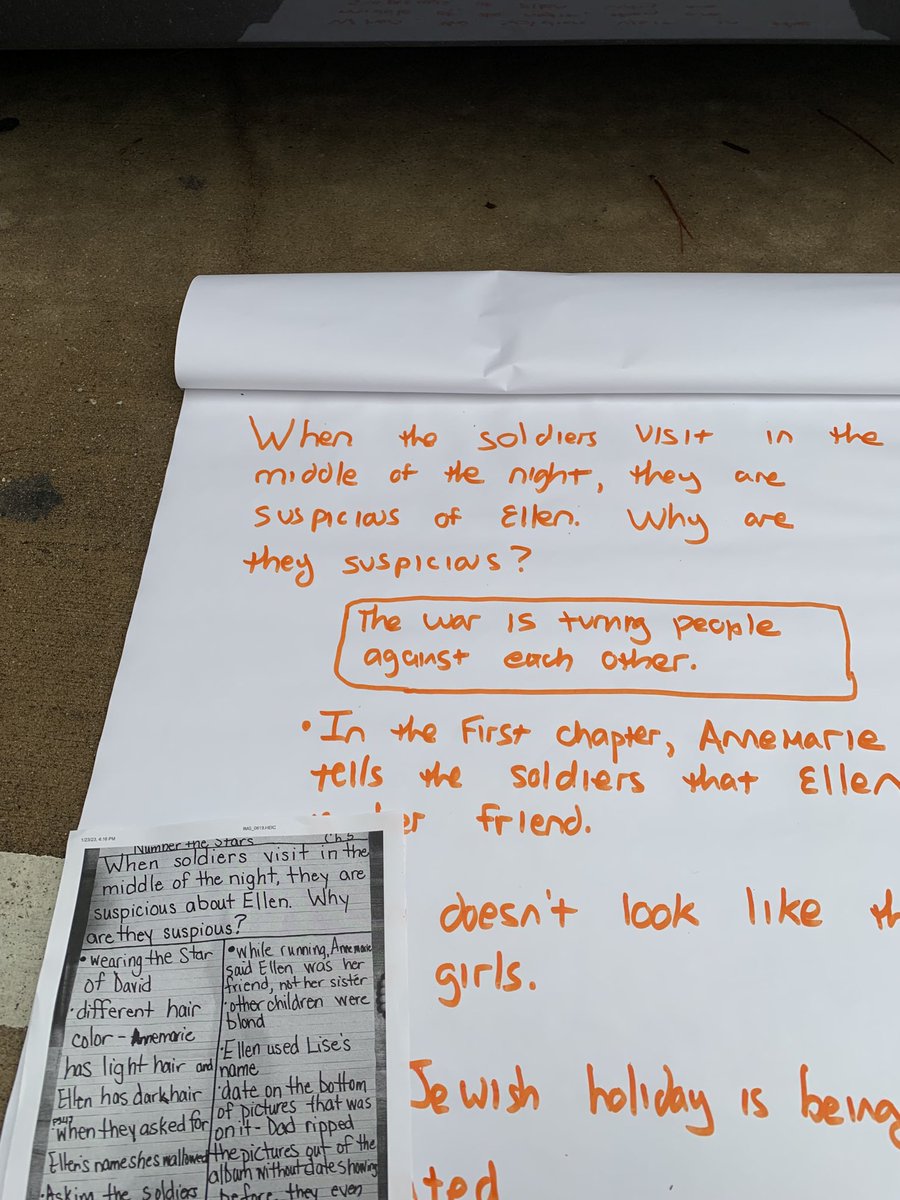 When the soldiers visit in the
middle of the night, they are
suspicious of Ellen. Why are
they suspicious?
The war is turning people
against each other.
• In the First chapter, Annemarie
tells the soldiers that Ellen
friend.
doesn't look like
girls.
Jewish holiday is being
1/23/23, 4:16 PM
IMG_0619.HEIC
Number the Stars Ch 5
When soldiers visit in the
middle of the night, they are
suspicious about Ellen. Why
are they suspious?
• wearing the Star
of David
• different hair
color - Annemarie
has light hair and
Ellen has dark hair
when they asked for
Ellen's name she swallowed
• Asking the soldiers
• while running, Annemarie
said Ellen was her
friend, not her sister
• other children were
blond
• Ellen used Lise's
name
• date on the bottom
of pictures that was
on it - Dad ripped
the pictures out of the
album without date showing
before they even